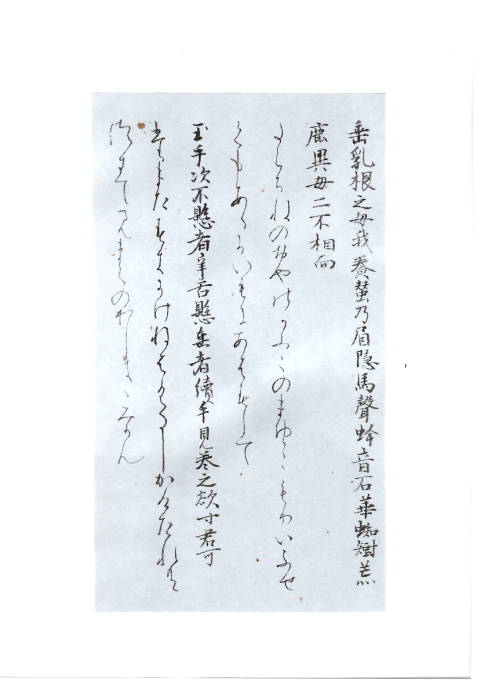 垂乳根之母我養蚕乃眉隠馬聲蜂音石華蜘蟵荒
鹿異母二不相而
たらちねのおやのかふこのまゆこもりいふせ
くもあるかいもにあはすして
玉手次不懸者辛苦懸垂者續手見巻之欲寸君可
たまたすきかけねはくるしかけたれは
つきてみまくのほしきゝみかも